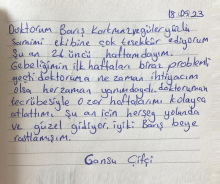 18.09.23
Doktorum Barış Korkmazyegüler yüzlü
samimi ekibine çok teşekkür ediyorum
Şu an 26'üncü haftamdayım.
Gebeliğimin ilk haftaları biraz problemli
geçti doktoruma ne zaman ihtiyacım
olsa herzaman yanımdaydı. doktorumun
tecrübesiyle o zor haftalarımı kolayca
atlattım. Şu an için herşey yolunda
ve güzel gidiyor. iyiki Barış beye
rastlamışım.
Cansu Çifçi